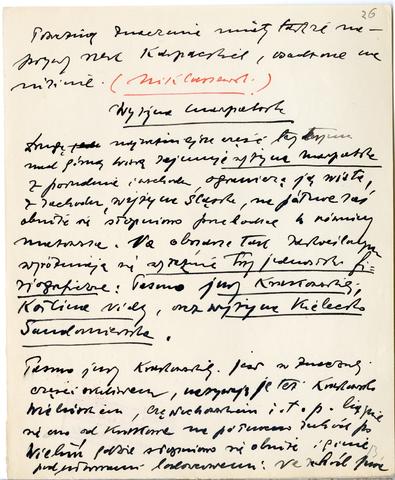 26
Poważną znaczenie miały także na-
prawy rzek Karpackich, osadzone na
nizinie. (Niklasewsk.)
Wyżyna małopolska
Drugą najważniejszą część tej krainy
nad górną Wisłą zajmuje wyżyna małopolska
z południa i wschodu ogranicza ją Wisła,
z zachodu, wyżyna Śląska, na północ zaś
obniża się stopniowo przechodząc w równiny
mazowsza. Na obszarze tak zakreślonym
wyróżniają się wyraźnie trzy jednostki fi-
ziograficzne: Pasmo jury Krakowskiej,
Kotlina Nidy, oraz wyżyna Kielecko
Sandomierska.
Pasmo jury Krakowskiej, jest w znacznej
części, nazywają je też Krakowsko
Wieluńskiem, Częstochowskiem i t. p. Ciągnie
się ono od Krakowa na północny zachód po
Wieluń gdzie stopniowo się obniża i ginie
pod utworami lodowcowemi: na wschód